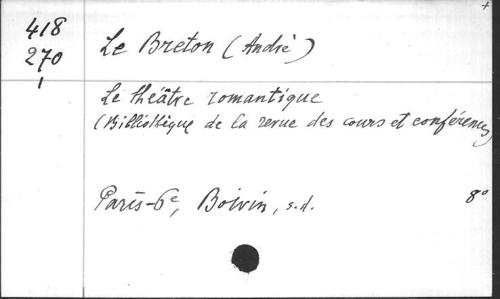 418
270
1
Le Breton (André)
Le théâtre romantique
(Bibliothèque de la revue des cours et conférences)
Paris-6e, Boivin, s.d. 8°